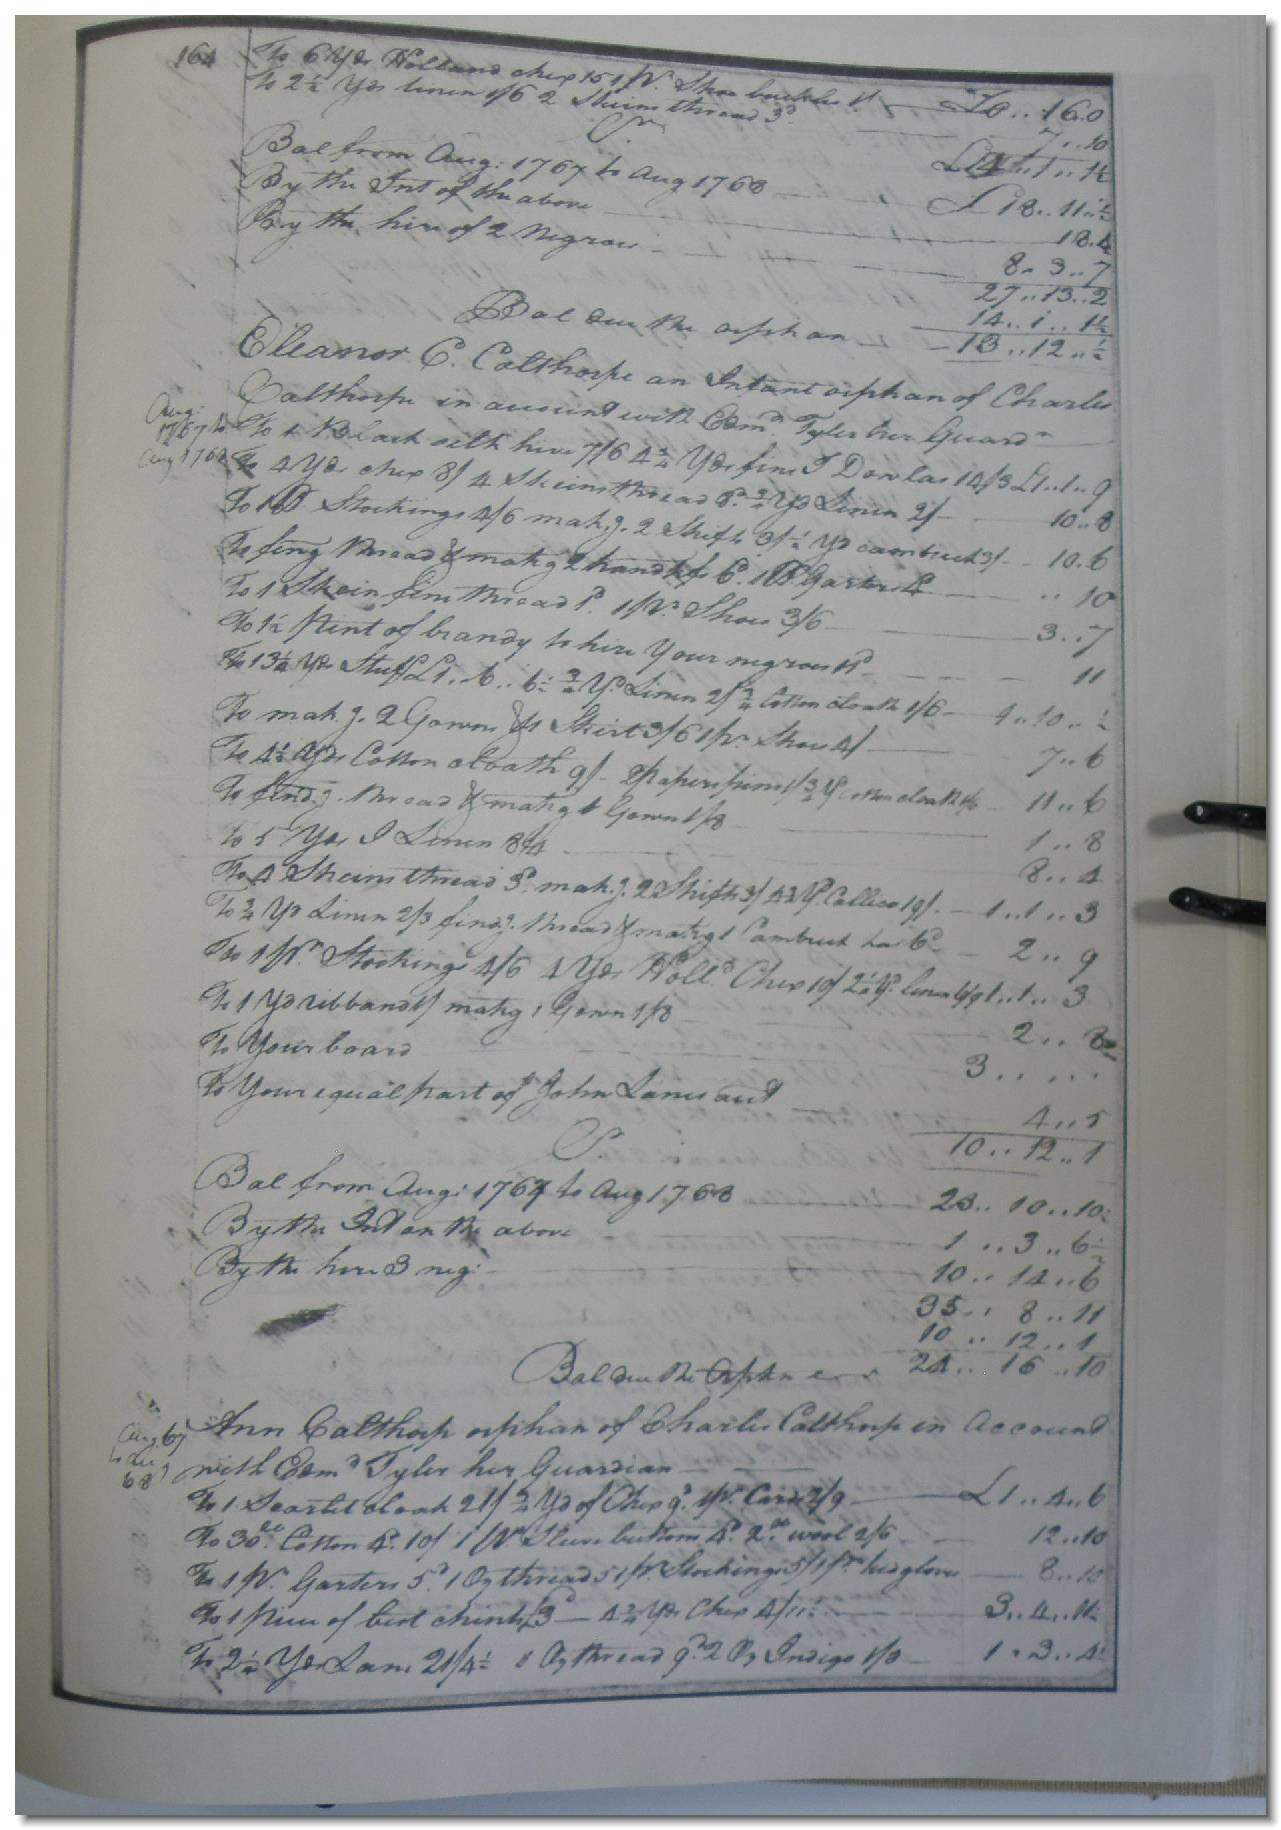 164
To 6 Yds Holland chex 15 1 Pr. Shoe buckles 1/ £0..16.0
To 2½ Yds linen 1/6 2 Skeins thread 3d. 7..10
Cr. £14..1..1½
Bal from Aug: 1767 to Aug 1768 £18..11..½
By the Int of the above 18.4
By the hire of 2 Negroes 8..3..7
27..13..2
14..1..1½
Bal due the orphan 13..12..½
Eleanor C. Calthorpe an Infant orphan of Charles
Calthorpe in account with Edmd. Tyler her Guardn
Aug:
1767 to
Aug 1768
To 1 Black silk 7/6 4¾ Yds fine I Dowlas 14/3 £1..1..9
To 4 Yds chex 8/ 4 Skeins thread 8d. ¾ Yd Linen 2/ 10..8
To 1 Pr Stockings 4/6 makg. 2 Shifts 3/ ½ Yd cambrick 3/ 10.6
To fing thread & makg 2 handkfs 6d. 1 Pr. Garters .. 10
To 1 Skein fine thread 1d. 1 Pr. Shoes 3/6 3..7
To 1½ Pint of brandy to hire Your negroes 11d. 11
To 13¼ Yds Stuff £1..6..6½ ¾ Yd. Linen 2/ ¾ Cotton cloath 1/6 1..10..½
To makg. 2 Gowns & 1 Skirt 3/6 1 Pr. Shoes 4/ 7..6
To 4½ Yds Cotton cloath 9/ 1 paper pins 1/ ¾ Yd cotton cloath 1/6 11..6
To findg. thread & makg 1 Gown 1/8 1..8
To 5 Yds I Linen 8/4 8..4
To 4 Skeins thread 3d. makg. 2 Shifts 3/ 4¾ Yd. Callico 19/. 1..1..3
To ¾ Yd Linen 2/3 findg. thread & makg 1 Cambrick hat 6d 2..9
To 1 Pr. Stockings 4/6 4 Yds Holld. Chex 10/ 2¼ Yd. linen 6/9 1..1..3
To 1 Yd ribband 1/ makg 1 Gown 1/8 2..8
To Your board 3.....
To Your equal part of John Lanes act 4..5
Cr. 10..12..1
Bal from Aug: 1767 to Aug 1768 23..10..10½
By the Int on the above 1..3..6½
By the hire 3 neg: 10..14..6
35..8..11
10..12..1
Bal due the Orphn 24..16..10
Aug 67
to Aug
68
Ann Calthorp orphan of Charles Calthorp in Account
with Edmd Tyler her Guardian
To 1 Scarlet cloak 21/ ¾ Yd of Chex 9d. 1 Pr. Cards 2/9 £1..4..6
To 30 lb Cotton 4d. 10/ 1 Pr Sleeve buttons 4d. 2 lb wool 2/6 12..10
To 1 Pr. Garters 5d. 1 Oz thread 5 1 Pr. Stockings 5/ 1 Pr. kid gloves 8..10
To 1 Piece of best chints £3 4¾ Yds Chex 4/11½ 3..4..11½
To 2½ Yds Lane 21/4½ 1 Oz thread 9d. 2 Oz Indigo 1/3 1..3..4½